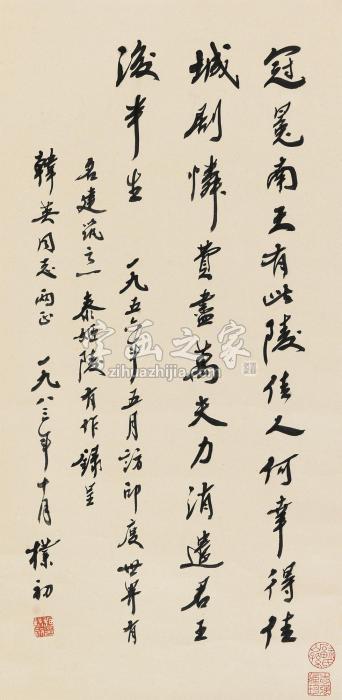 冠冕南天有此陵佳人何幸得佳
城剧憐費盡萬夫力消遣君王
後半生
一九五六年五月訪印度世界有
名建筑之一泰姬陵有作録呈
韓英同志兩正 一九八三年十月 樸初
字画之家
zihuazhijia.com